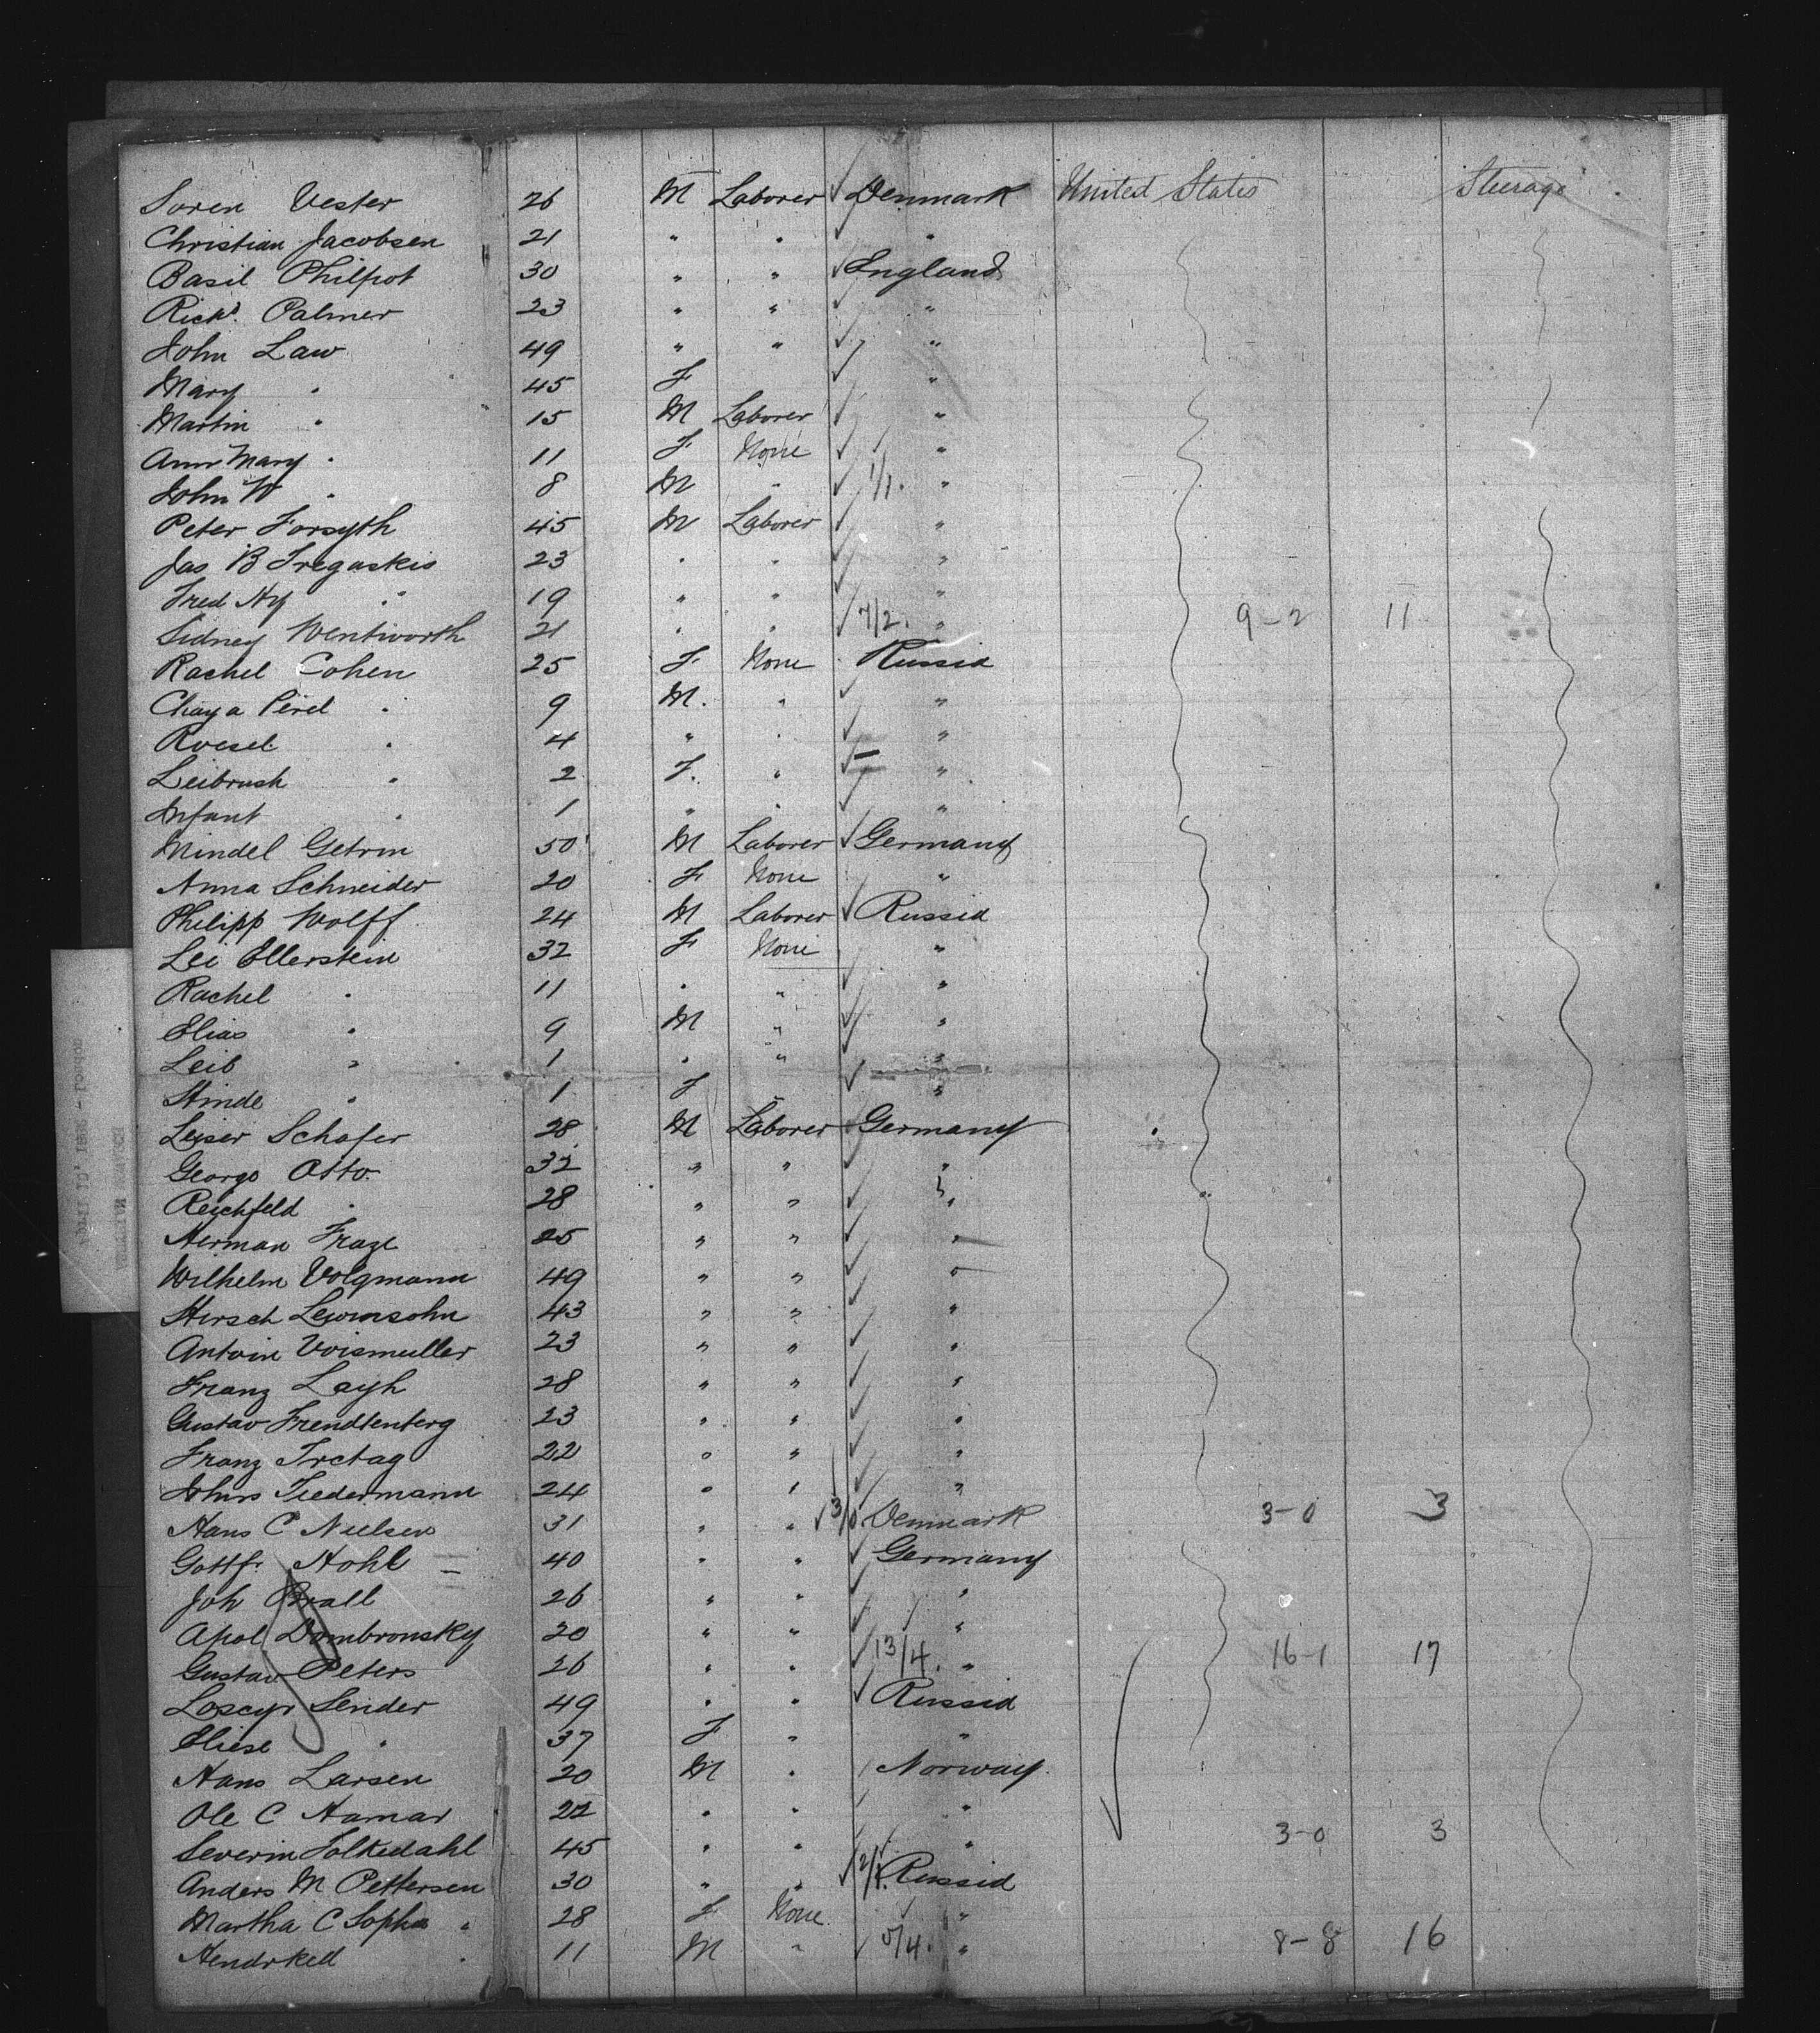 Soren Vester 26 M Laborer Denmark United States Steerage
Christian Jacobsen 21 " " "
Basil Philpot 30 " " England
Richd. Palmer 23 " " "
John Law 49 " " "
Mary " 45 F "
Martin " 15 M Laborer "
Ann Mary " 11 F None "
John W " 8 M " 1/1. "
Peter Forsyth 45 M Laborer "
Jas B Tregaskis 23 " " "
Fred Hy " 19 " " "
Sidney Wentworth 21 " " 7/2. " 9-2 11
Rachel Cohen 25 F None Russia
Chaya Perel " 9 M. " "
Roesel " 4 " " "
Leibrush " 2 F. " "
Infant " 1 " " "
Mindel Getrin 50 M Laborer Germany
Anna Schneider 20 F None "
Philipp Wolff 24 M Laborer Russia
Lei Ellerstein 32 F None "
Rachel " 11 " " "
Elias " 9 M " "
Leib " 1 " " "
Hinde " 1 F "
Leiser Schafer 28 M Laborer Germany
George Otto 32 " " "
Reichfeld " 28 " " "
Herman Fraze 25 " " "
Wilhelm Volgmann 49 " " "
Hirsch Lewinsohn 43 " " "
Antoin Voismuller 23 " " "
Franz Layh 28 " " "
Gustav Frendtenberg 23 " " "
Franz Irctag 22 " " "
Johns Tiedermann 24 " " "
Hans C Nielsen 31 " " 3/0. Denmark 3-0 3
Gottf. Hohl 40 " " Germany
Joh Brall 26 " " "
Apol Dombronsky 20 " " "
Gustav Peters 26 " " 13/4. " 16-1 17
Loscyr Sender 49 " " Russia
Eliese " 37 F " "
Hans Larsen 20 M " Norway
Ole C Hamar 22 " " "
Severin Folkedahl 45 " " " 3-0 3
Anders M Pettersen 30 " " 2/1. Russia
Martha C Sopha " 28 F None "
Hendrked " 11 M " 5/4. " 8-8 16